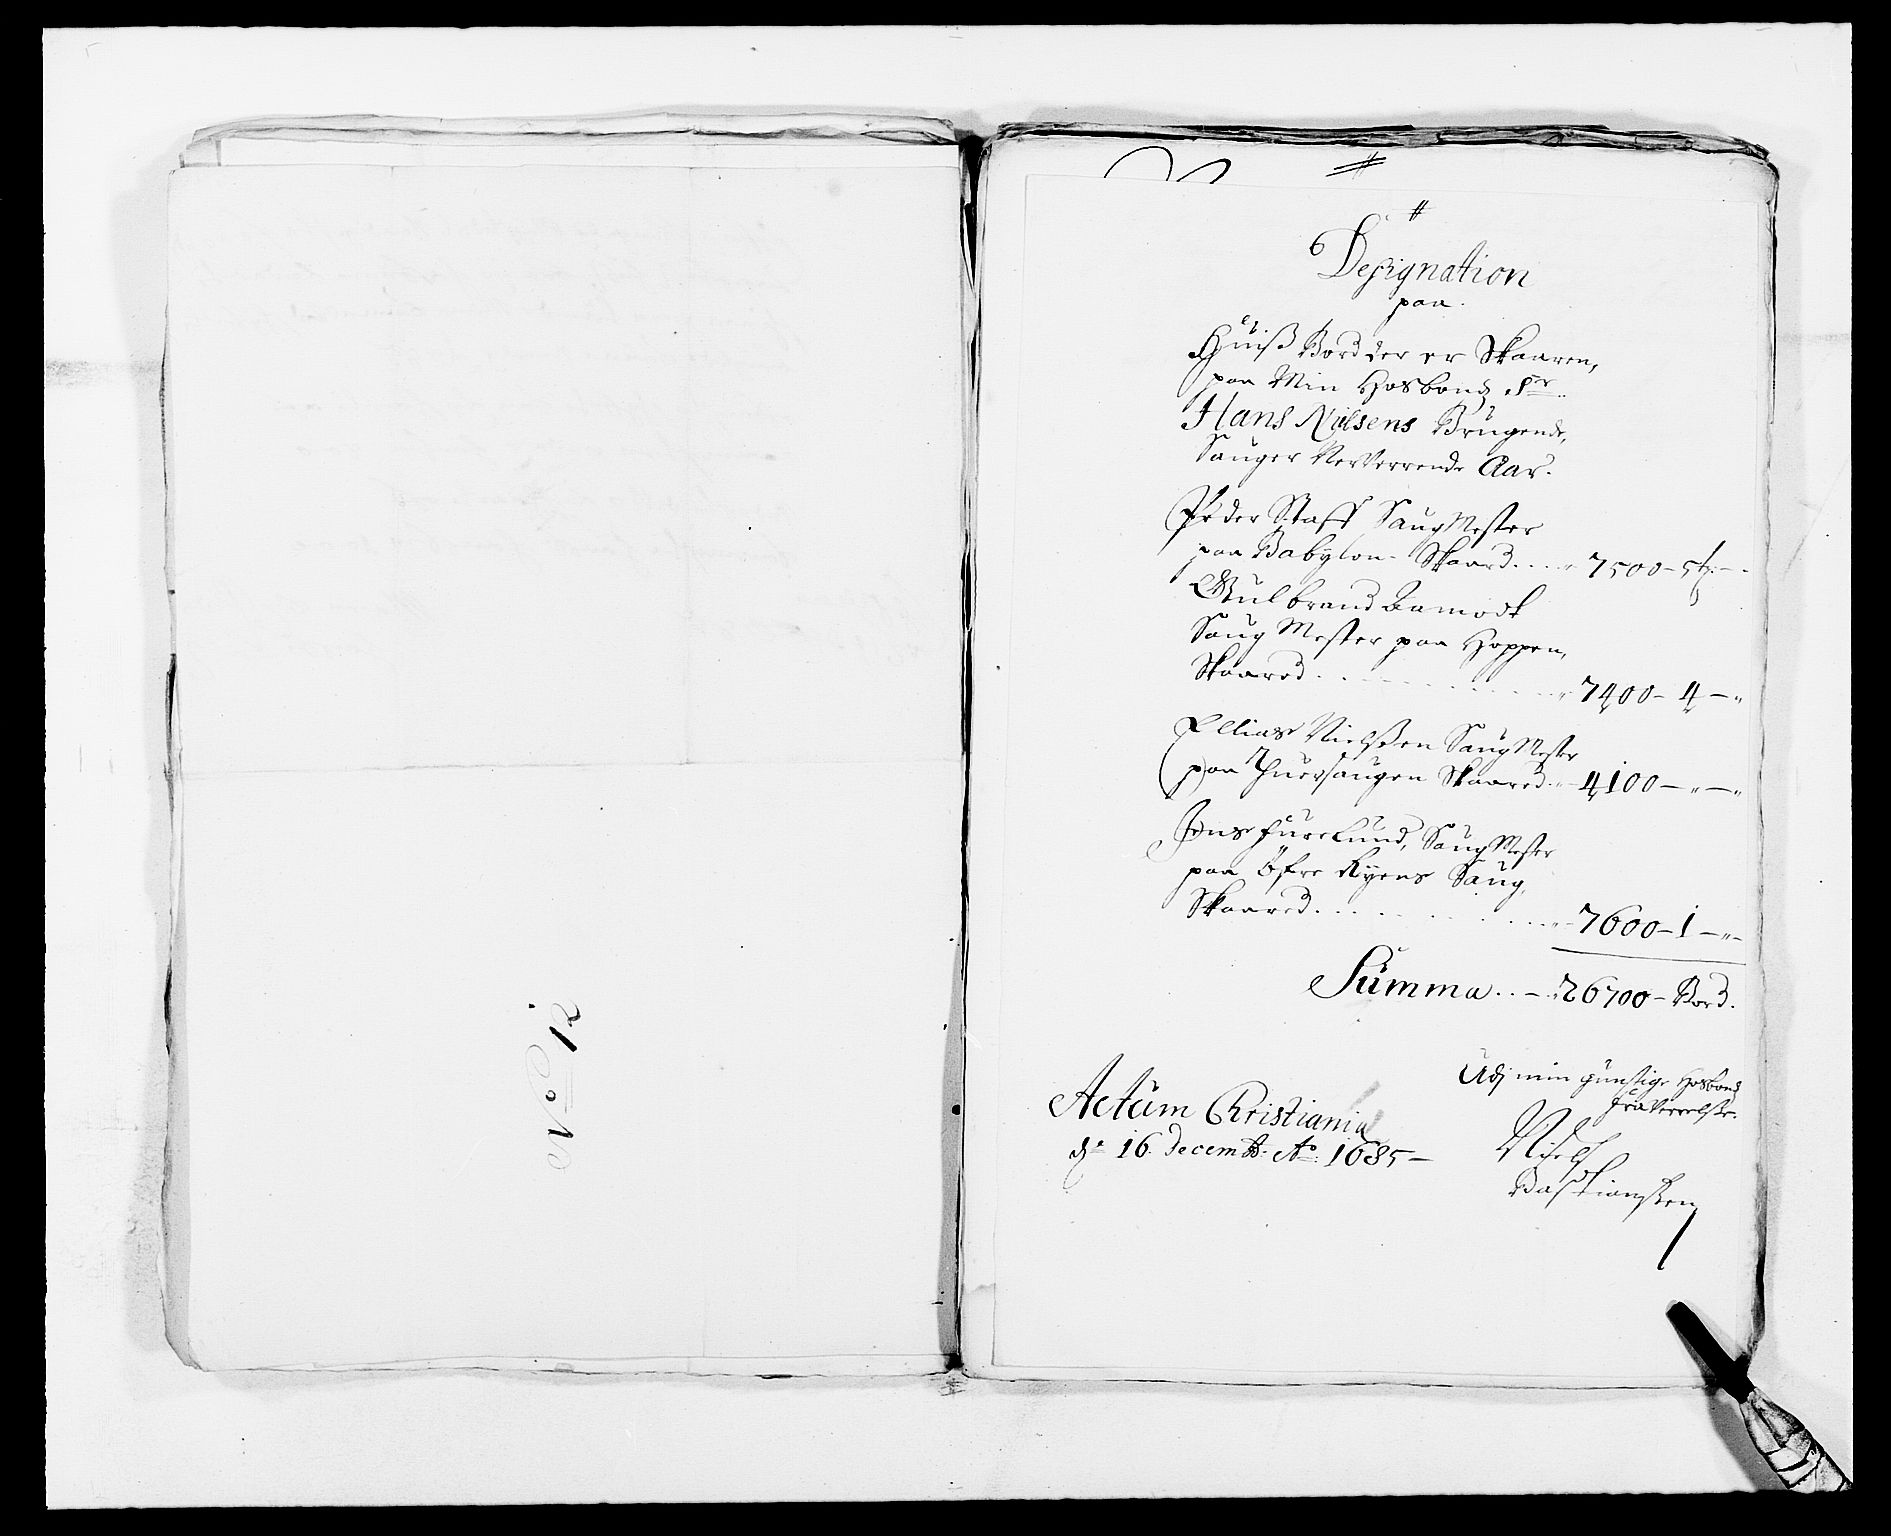 No 12
Designation
paa
Huiß Bord der er Skaaren,
paa Min Hosbond Sr
Hans Nilsens Brugende,
Sauger Nerverrende Aar.
Peder Staff Saug Mester
paa Babylon Skaard .... 7500 – 5 ty: –
Gulbrand
Saug Mester paa Hoppen,
Skaared ........ 7400 – 4 – "
Ellias Nielßen Saug Mester
paa Thuersaugen Skaared .. 4100 – " – "
Jens Furelund, Saug Mester
paa Öfre Ryens Saug,
Skaared ........ 7600 – 1 – " –
Summa .. – 26700 – Bord.
Actum Christiania
d: 16. decemb: Ao: 1685 –
Udj min gunstige Hosbonds
fraverelße.
Niels
Bastianßen